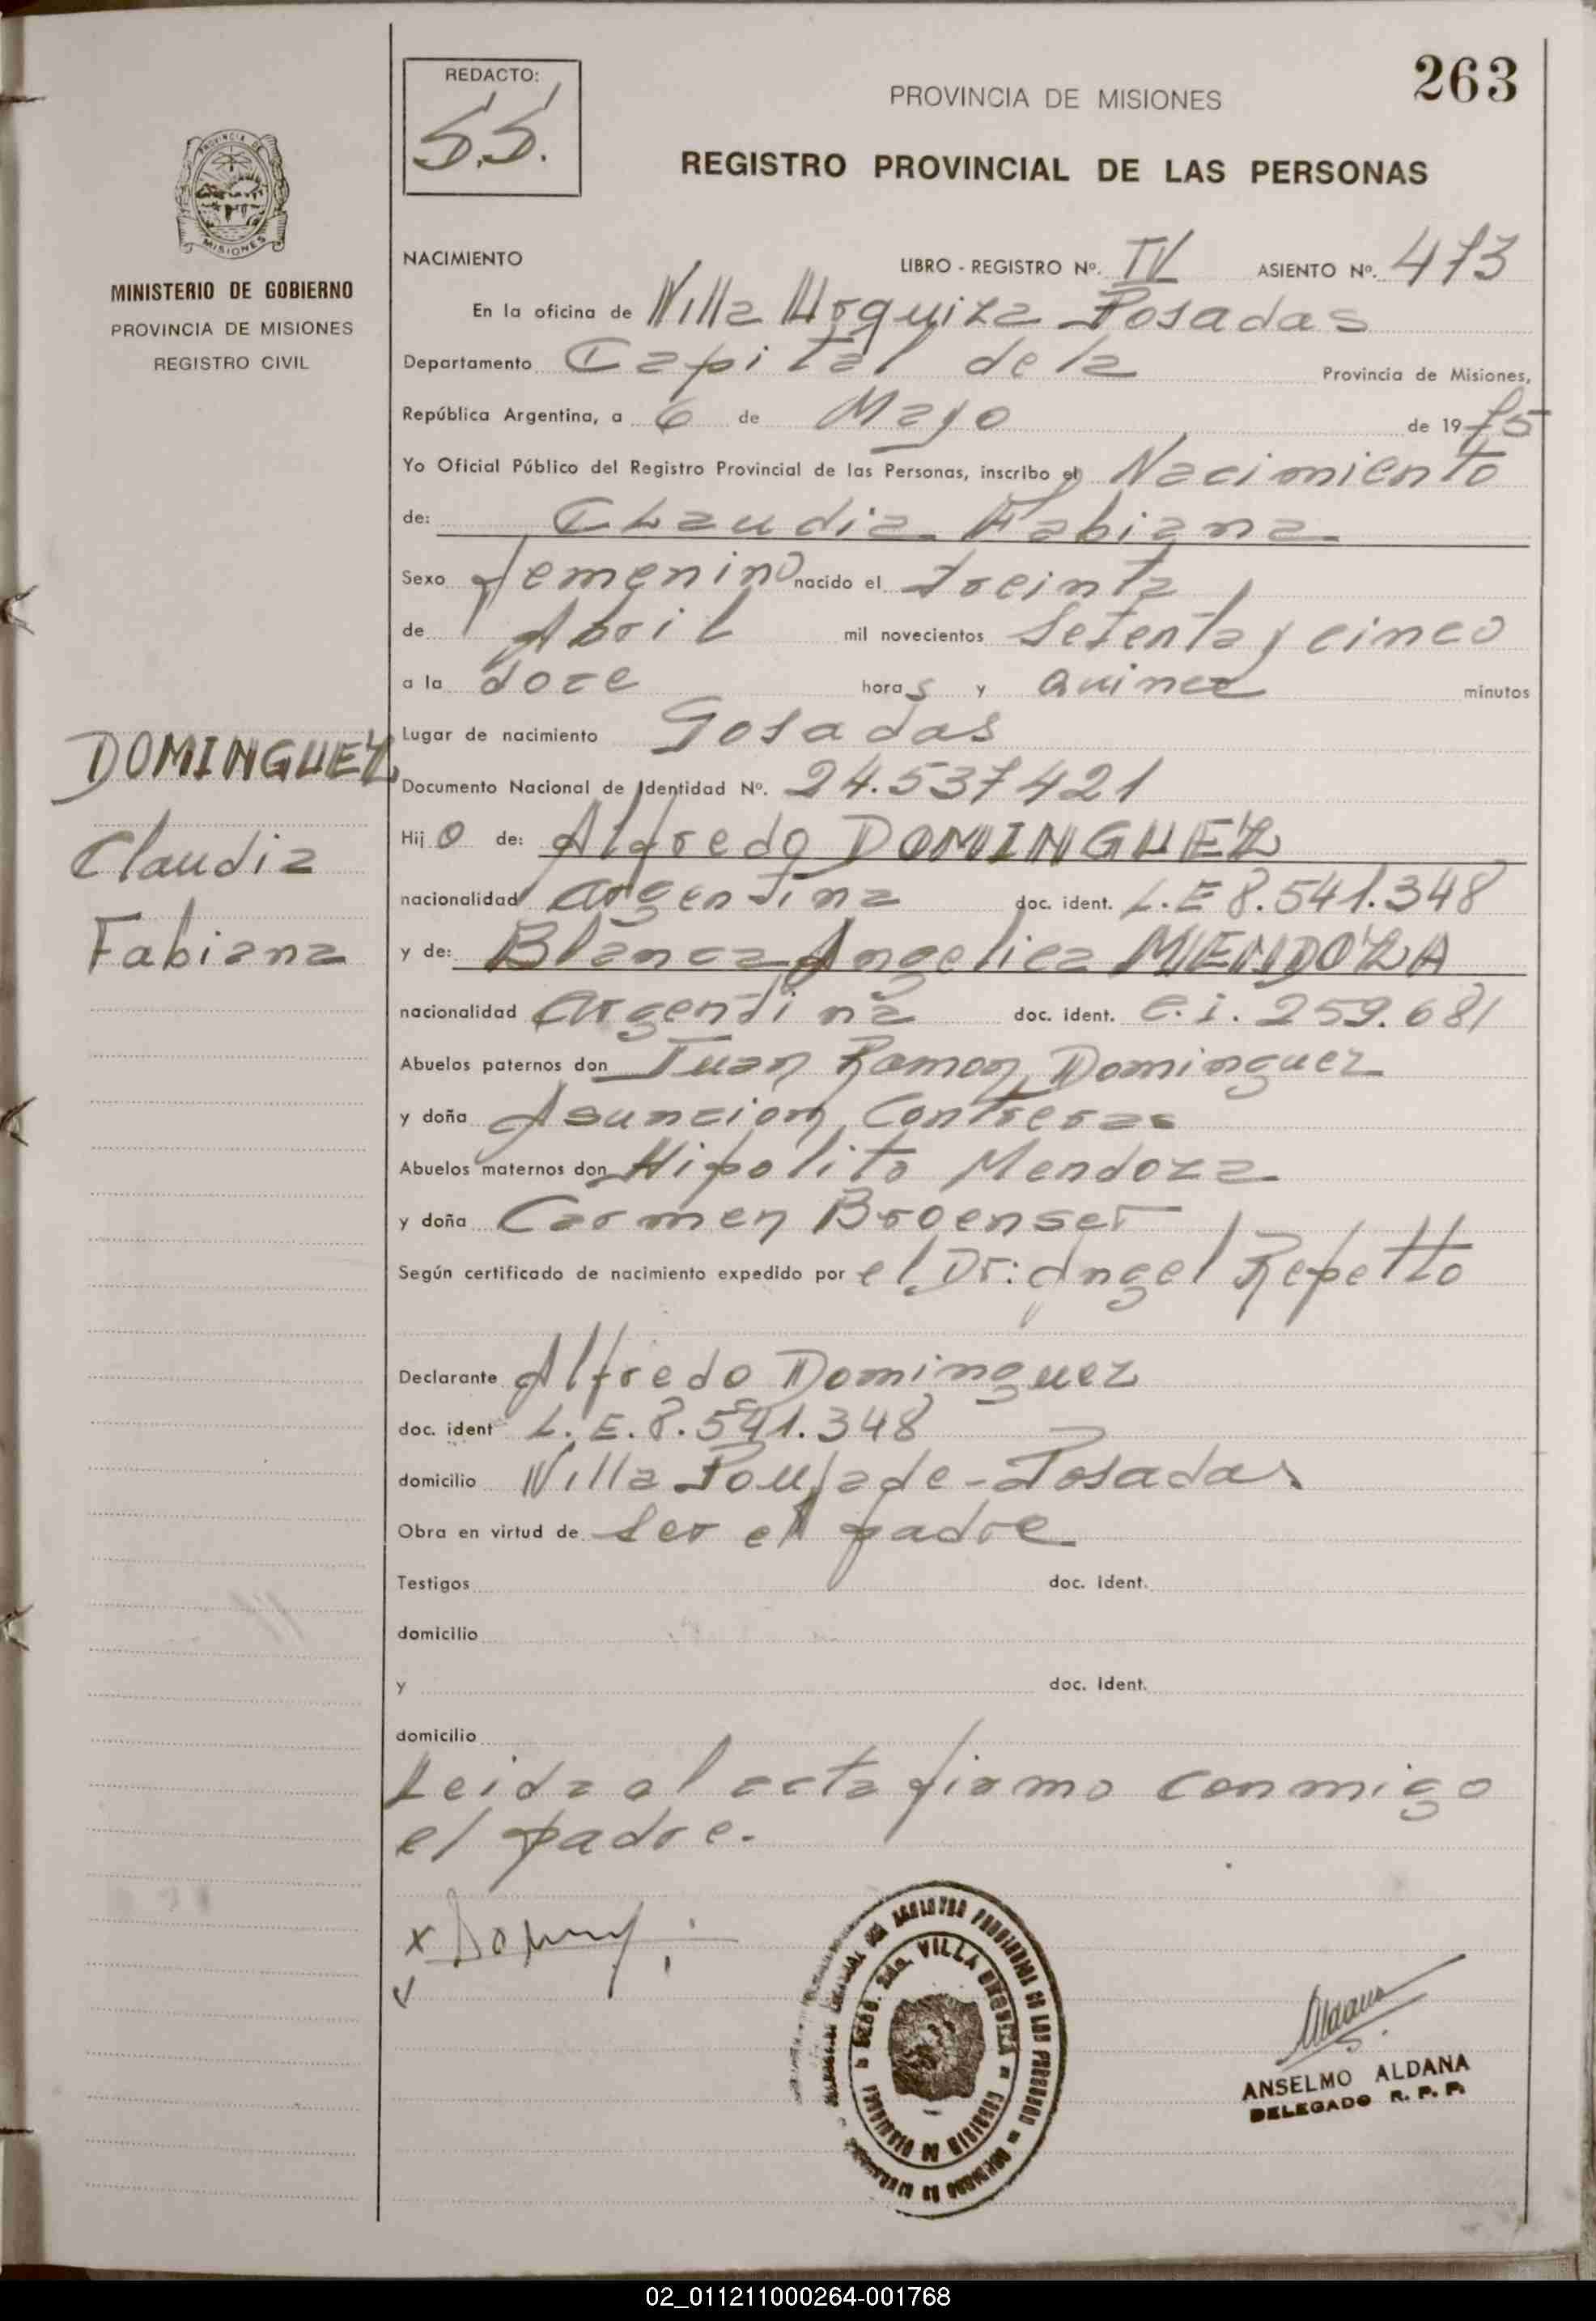 263
REDACTO:
S.S.
PROVINCIA DE MISIONES
REGISTRO PROVINCIAL DE LAS PERSONAS
PROVINCIA DE
MISIONES
MINISTERIO DE GOBIERNO
PROVINCIA DE MISIONES
REGISTRO CIVIL
NACIMIENTO LIBRO - REGISTRO Nº. IV ASIENTO Nº. 473
En la oficina de Villa Urquiza Posadas
Departamento Capital de la Provincia de Misiones,
República Argentina, a 6 de Mayo de 1975
Yo Oficial Público del Registro Provincial de las Personas, inscribo el Nacimiento
de: Claudia Fabiana
Sexo femenino nacido el treinta
de Abril mil novecientos setenta y cinco
a la doce horas y quince minutos
Lugar de nacimiento Posadas
DOMINGUEZ
Claudia
Fabiana
Documento Nacional de Identidad Nº. 24.537421
Hijo de: Alfredo DOMINGUEZ
nacionalidad argentina doc. ident. L.E 8.541.348
y de: Blanca Angelica MENDOZA
nacionalidad argentina doc. ident. c.i. 259.681
Abuelos paternos don Juan Ramon Dominguez
y doña Asuncion Contreras
Abuelos maternos don Hipolito Mendoza
y doña Carmen Broenser
Según certificado de nacimiento expedido por el Dr: Angel Repetto
Declarante Alfredo Dominguez
doc. ident L.E. 8.541.348
domicilio Villa Poujade - Posadas
Obra en virtud de ser el padre
Testigos doc. ident.
domicilio
y doc. ident.
domicilio
Leida al acta firmo conmigo
el padre.
x
VILLA URQUIZA
Aldana
ANSELMO ALDANA
DELEGADO R. P. P.
02_011211000264-001768